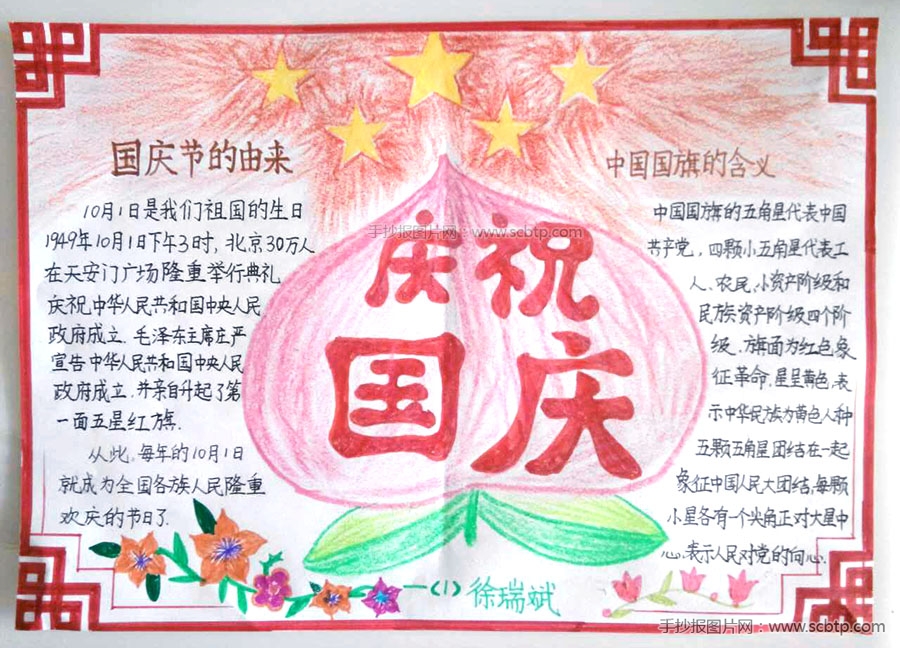 国庆节的由来
10月1日是我们祖国的生日
1949年10月1日下午3时，北京30万人
在天安门广场隆重举行典礼
庆祝中华人民共和国中央人民
政府成立.毛泽东主席庄严
宣告中华人民共和国中央人民
政府成立.并亲自升起了第
一面五星红旗.
从此,每年的10月1日
就成为全国各族人民隆重
欢庆的节日了.
手抄报图片网：www.scbtp.com
庆祝
国庆
中国国旗的含义
中国国旗的五角星代表中国
共产党，四颗小五角星代表工
人、农民、小资产阶级和
民族资产阶级四个阶
级.旗面为红色象
征革命.星呈黄色.表
示中华民族为黄色人种
五颗五角星团结在一起
象征中国人民大团结,每颗
小星各有一个尖角正对大星中
心.表示人民对党的向心.
一(1)徐瑞斌
手抄报图片网：www.scbtp.com